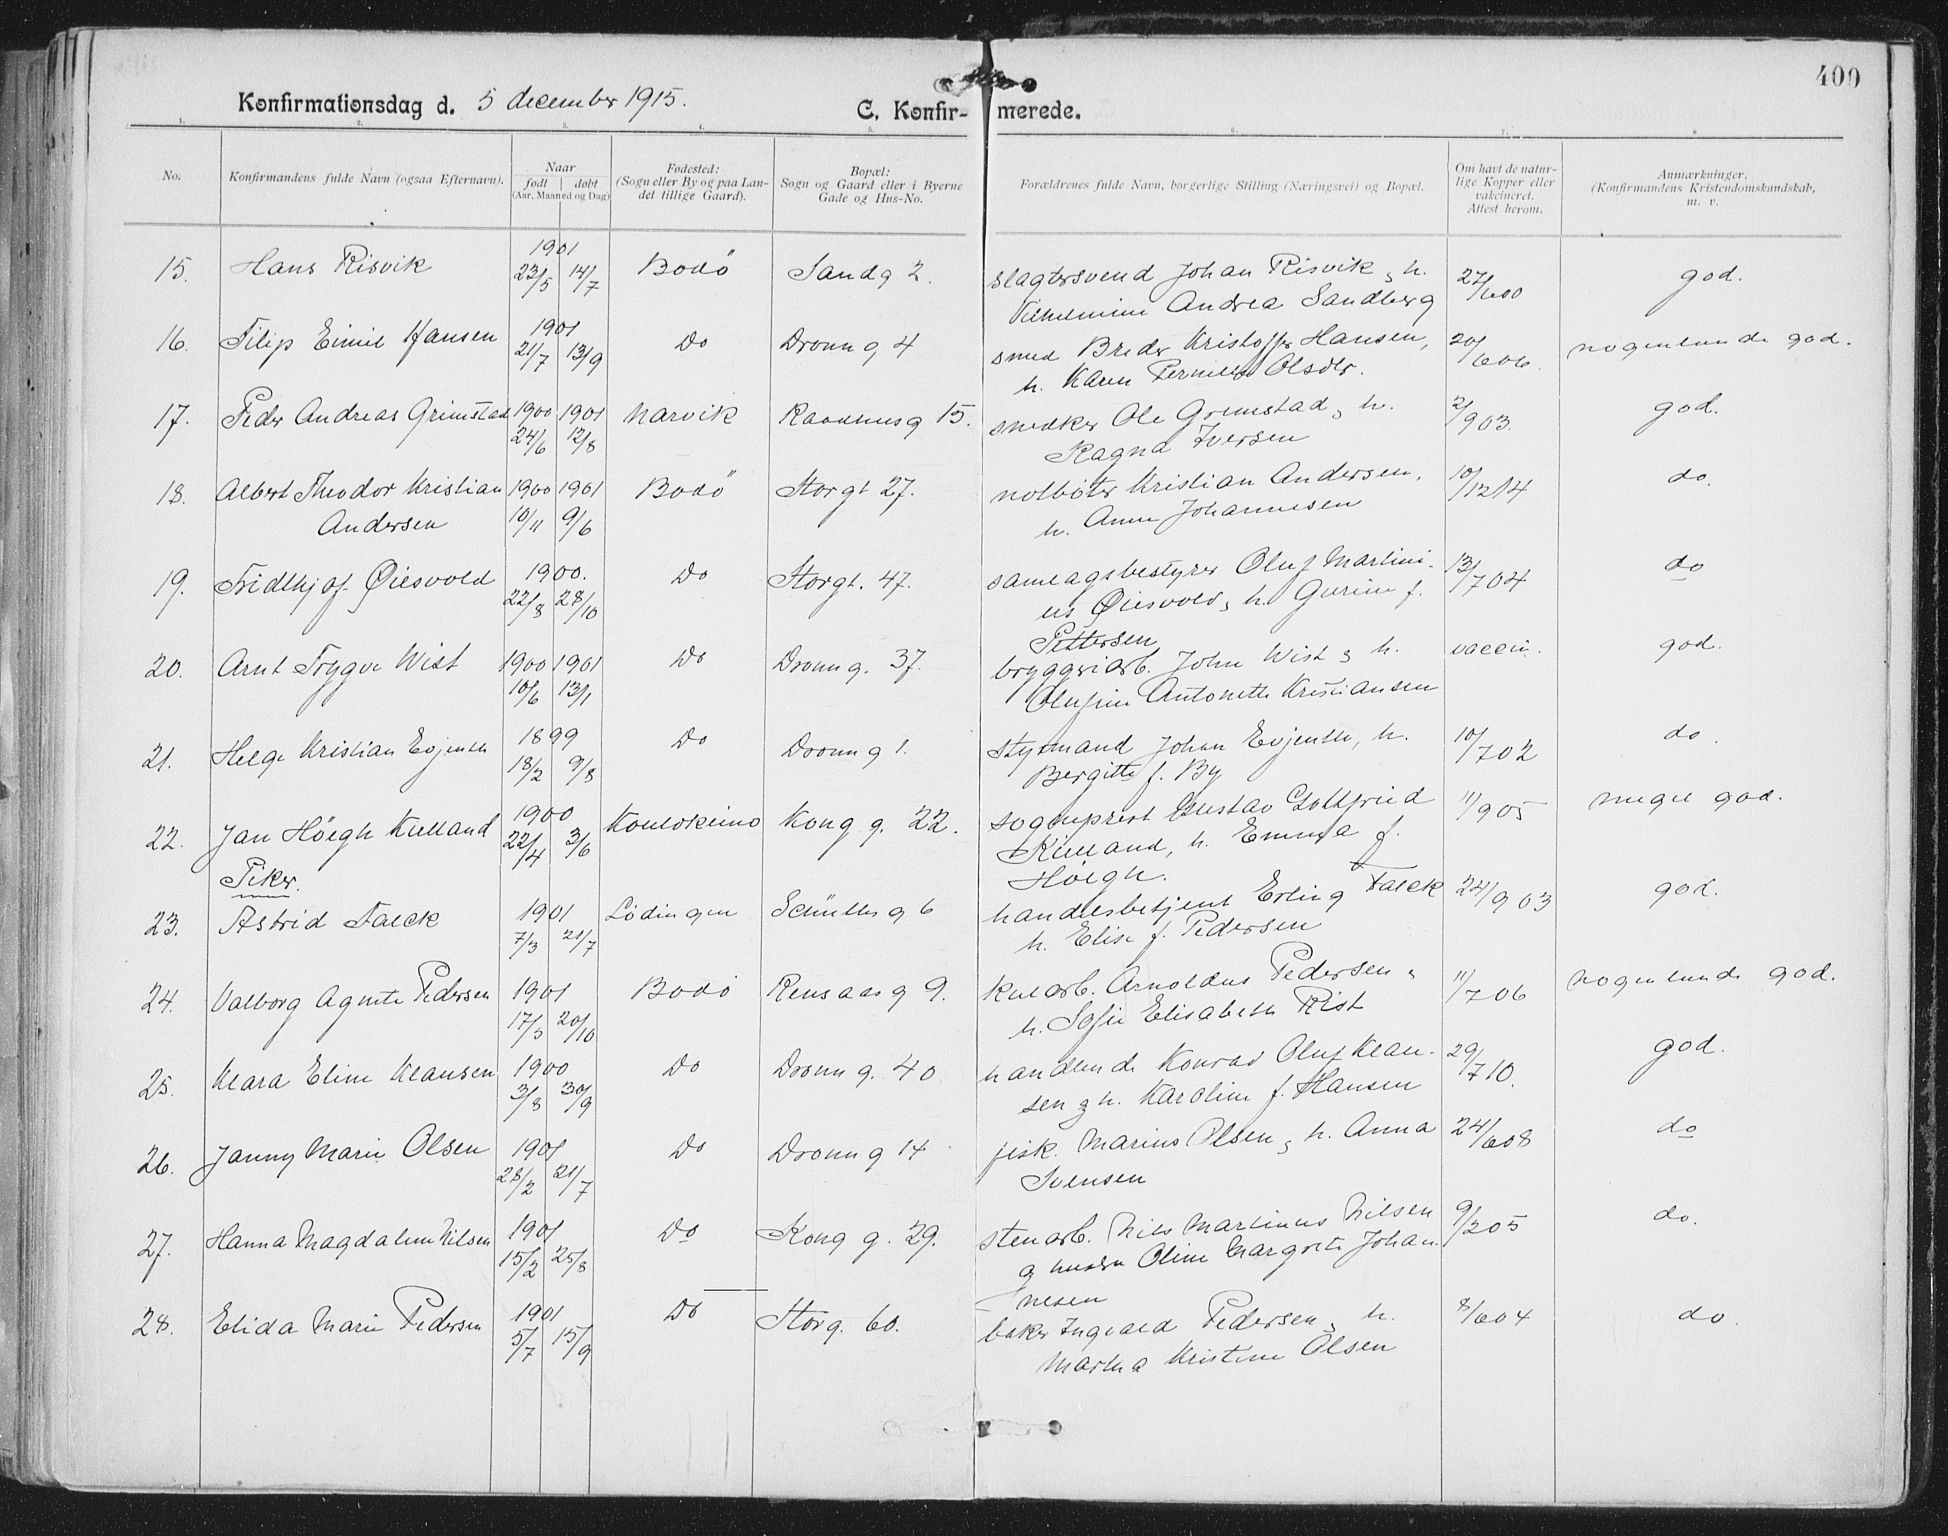 400
Konfirmationsdag d. 5 december 1915.
C. Konfir- merede.
1. 2. 3. 4. 5. 6. 7. 8.
No. Konfirmandens fulde Navn (ogsaa Efternavn). Naar født døbt (Aar, Maaned og Dag) Fødested: (Sogn eller By og paa Lan- det tillige Gaard). Bopæl: Sogn og Gaard eller i Byerne Gade og Hus-No. Forældrenes fulde Navn, borgerlige Stilling (Næringsvei) og Bopæl. Om havt de natur- lige Kopper eller vakcineret. Attest herom. Anmærkninger. (Konfirmandens Kristendomskundskab, m. v.
15. Hans Risvik 1901 23/5 14/7 Bodö Sandg 2. slagtersvend Johan Risvik, h. 27/600 god.
Vilhelmine Andrea Sandberg
16. Filip Eimil Hansen 1901 21/7 13/9 Do Dronn g 4 smed Breder Kristoffer Hansen, 20/606 nogenlunde god.
h. Karen Pernille Olsdtr.
17. Peder Andreas Grimstad 1900 1901 Narvik Raadhusg 15. snedker Ole Grimstad, h. 2/903. god.
24/6 12/8 Ragna Iversen
18. Albert Theodor Kristian 1900 1901 Bodö Storgt 27. notbøter Kristian Andersen, 10/1214 do.
Andersen 10/11 9/6 h. Anna Johannesen
19. Fridthjof Øiesvold 1900. 22/8 28/10 Do Storgt. 47. samlagsbestyrer Oluf Martini- 13/704 do
us Øiesvold, h. Gurine f.
Pettersen
20. Arnt Trygve Wist 1900 1901 Do Dronn g. 37. bryggeriarb. John Wist, h. vaccin. god.
10/6 13/1 Olufine Antonette Kristiansen
21. Helge Kristian Evjenth 1899 18/2 9/8 Do Dronn g 1. styrmand Johan Evjenth, h. 10/702 do.
Bergitte f. By
22. Jan Höegh Kielland 1900 22/4 3/6 Koutokeino Kong g. 22. sogneprest Gustav Gottfried 11/905 meget god.
Kielland, h. Emma f.
Höegh.
Piker.
23. Astrid Falck 1901 7/3 21/7 Lödingen g 6 handelsbetjent Erling Falck 24/903 god.
h. Elise f. Pedersen
24. Valborg Agnete Pedersen 1901 Bodö Rensaas g 9. kularb. Arnoldus Pedersen, 11/706 nogenlunde god.
20/10 h. Sofie Elisabeth Rist
25. Klara Eline Klausen 1900 3/8 30/9 Do Dronn g. 40 handlende Konrad Oluf Klau- 29/710. god.
sen, h. Karoline f. Hansen
26. Janny Marie Olsen 1901 28/2 21/7 Do Dronn g 14 fisk. Marius Olsen, h. Anna 24/608 do
Svensen
27. Hanna Magdalene Nilsen 1901 15/2 25/8 Do Kong g. 29. stenarb. Nils Martinus Nilsen 9/205 do.
g hustru Oline Margrete Johan-
nesen
28. Elida Marie Pedersen 1901 5/7 15/9 Do Storg. 60. baker Ingvald Pedersen, h. 8/604 do
Martha Kristine Olsen